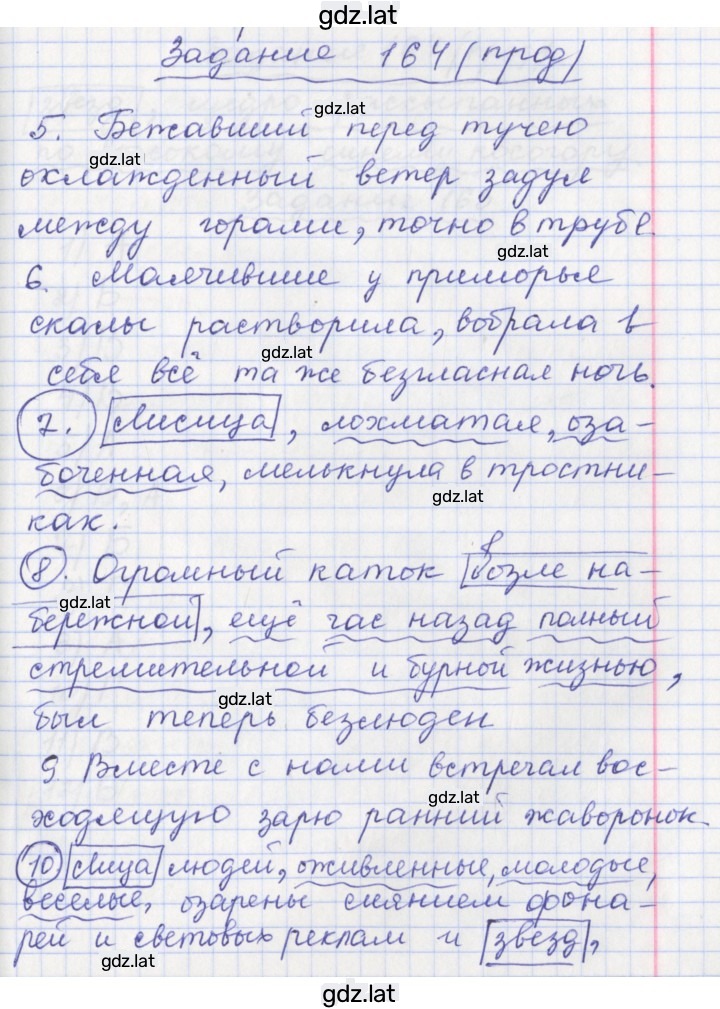 gdz.lat
Задание 164 (прод)
gdz.lat
5. Бежавший перед тучею
gdz.lat
охлажденный ветер задул
между горами, точно в трубе.
gdz.lat
6. Молчившие у приморья
скалы растворила, вобрала в
gdz.lat
себя всё та же безгласная ночь.
7. Лисица, лохматая, оза-
боченная, мелькнула в тростни-
gdz.lat
ках.
8. Огромный каток возле на-
gdz.lat
бережной, ещё час назад полный
стремительной и бурной жизнью,
gdz.lat
был теперь безлюден
9. Вместе с нами встречал вос-
gdz.lat
ходящую зарю ранний жаворонок.
10 Лица людей, оживленные, молодые,
веселые, озарены сиянием фона-
рей и световых реклам и звезд,
gdz.lat
gdz.lat